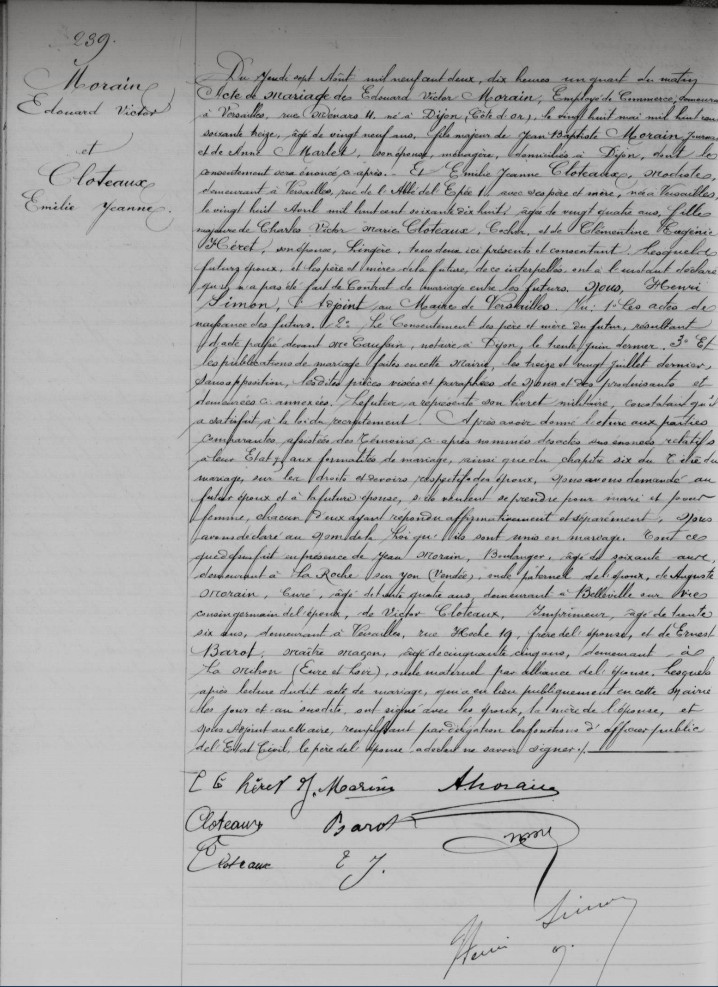 239.
Morain
Edouard Victor
et
Cloteaux
Emilie Jeanne.
Du Jeudi sept Août mil neuf cent deux, dix heures un quart du matin
Acte de mariage de Edouard Victor Morain, Employé de Commerce, demeurant
à Versailles, rue Ménars 11. né à Dijon (Côte d'or), le vingt huit mai mil huit cent
soixante treize, âgé de vingt neuf ans, fils majeur de Jean Baptiste Morain,
et de Anne Marlet, son épouse, ménagère, domiciliés à Dijon, dont le
consentement sera énoncé ci-après. - Et Emilie Jeanne Cloteaux, modiste,
demeurant à Versailles, rue de l'Abbé de l'Epée 1 avec ses père et mère, née à Versailles,
le vingt huit Avril mil huit cent soixante dix huit, âgée de vingt quatre ans, fille
majeure de Charles Victor Marie Cloteaux, Cocher, et de Clémentine Eugénie
Héret, son épouse, Lingère, tous deux ici présents et consentant. Lesquels
futurs époux, et les père et mère de la future, de ce interpellés, ont à l'instant déclaré
qu'il n'a pas été fait de Contrat de mariage entre les futurs. Nous, Henri
Simon, Adjoint au Maire de Versailles. Vu: 1° Les actes de
naissance des futurs. 2° Le Consentement des père et mère du futur, résultant
d'acte passé devant Me notaire à Dijon, le trente juin dernier. 3° Et
les publications de mariage faites en cette Mairie, les treize et vingt Juillet dernier,
sans opposition, lesdites pièces visées et paraphées de Nous et des produisants et
demeurées ci-annexées. Le futur a représenté son livret militaire, constatant qu'il
a satisfait à la loi du recrutement. Après avoir donné lecture aux parties
comparantes, assistées des Témoins ci-après nommés desactes sus énoncés relatifs
à leur Etat & aux formalités de mariage, ainsi que du chapitre six du Titre du
mariage, sur les droits et devoirs respectifs des époux, Nous avons demandé au
futur époux et à la future épouse, s'ils veulent se prendre pour mari et pour
femme, chacun d'eux ayant répondu affirmativement et séparément, Nous
avons déclaré au Nom de la Loi qu'ils sont unis en mariage. Tout ce
que dessus fait en présence de Jean Morain, Boulanger, âgé de soixante
demeurant à La Roche sur Yon (Vendée), oncle paternel de l'époux, de Auguste
Morain, Curé, âgé de trente quatre ans, demeurant à Belleville sur Vie
cousin germain de l'époux, de Victor Cloteaux, Imprimeur, âgé de trente
six ans, demeurant à Versailles, rue Hoche 19, frère de l'épouse, et de Ernest
Barot, maître maçon, âgé de cinquante cinq ans, demeurant à
La (Eure et Loir), oncle maternel par alliance de l'épouse. Lesquels
après lecture dudit acte de mariage, qui a eu lieu publiquement en cette Mairie
les jour et an susdits, ont signé avec les époux, la mère de l'épouse, et
Nous Adjoint au Maire, remplissant par délégation les fonctions d'officier public
de l'Etat Civil, le père de l'épouse, a déclaré ne savoir signer ./.
héret J. Morain A Morain
Cloteaux Barot
Cloteaux E J.
Henri Simon